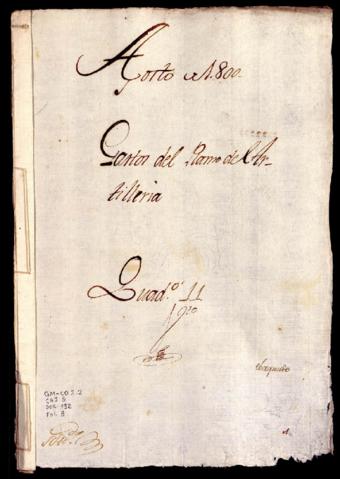 Agosto de 1.800.
Gastos del Ramo de Ar-
tilleria
Quad.º 11
GM-CO 3.2
CAJ 5
DOC 192
Fol. 8